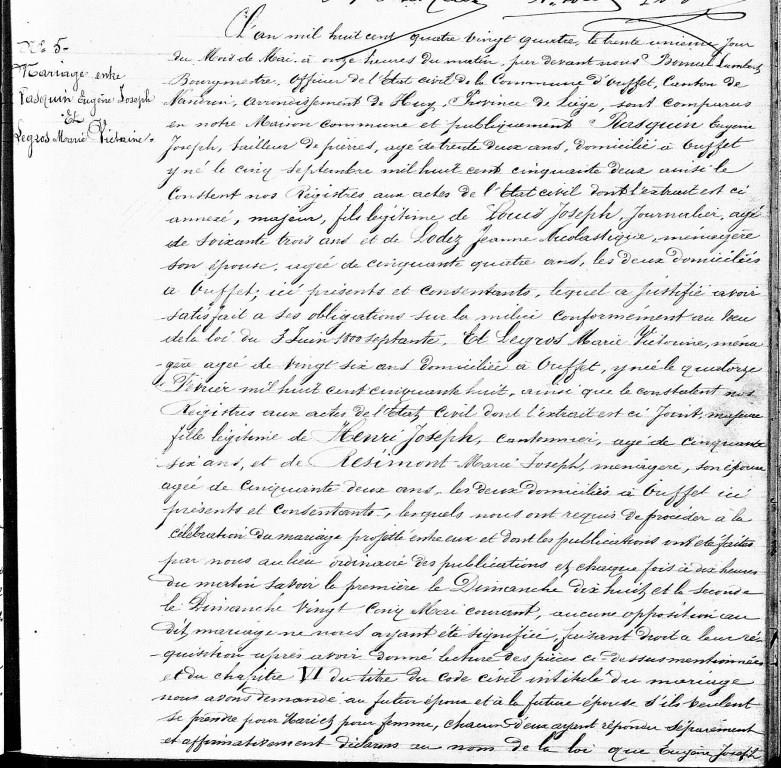 L'an mil huit cent quatre vingt quatre, le trente unième Jour
N° 5-
du Mois de Mai, à onze heures du matin, par devant nous Lambert
Mariage entre
Bourgmestre, Officier de l'Etat civil de la Commune d'Ouffet, Canton de
Rasquin Eugène Joseph
Nandrin, arrondissement de Huy, Province de Liège, sont comparus
Et
en notre Maison commune et publiquement Rasquin Eugène
Legros Marie Victorine.
Joseph, tailleur de pierres, agé de trente deux ans, domicilié à Ouffet
y né le cinq septembre mil huit cent cinquante deux ainsi le
Constent nos Régistres aux actes de l'Etat civil dont l'extrait est ci
annexé, majeur, fils légitime de Louis Joseph, Journalier, agé
de soixante trois ans et de Lodez Jeanne ménagère
son épouse, agée de cinquante quatre ans, les deux domiciliés
à Ouffet, ici présents et consentants, lequel a justifié avoir
satisfait a ses obligations sur la milice conformément au vœu
de la loi du 3 Juin 1800 septante, Et Legros Marie Victorine, ména
-gère agée de vingt six ans domiciliée à Ouffet, y née le quatorze
Février mil huit cent cinquante huit, ainsi que le constatent nos
Régistres aux actes de l'Etat Civil dont l'extrait est ci Joint, majeure
fille légitime de Henri Joseph, cantonnier, agé de cinquante
six ans, et de Resimont Marie Joseph, ménagère, son épouse
agée de Cinquante deux ans, les deux domiciliés à Ouffet ici
présents et consentants, lesquels nous ont requis de procéder à la
célébration du mariage projetté entre eux et dont les publications ont été faites
par nous au lieu ordinaire des publications et chaque fois à dix heures
du matin savoir la première le Dimanche dix huit et la seconde
le Dimanche vingt Cinq Mai courant, aucune opposition au
dit mariage ne nous ayant été signifiée, faisant droit a leur ré-
-quisition après avoir donné lecture des pièces ci-dessus mentionnées
et du chapitre VI du titre du Code civil intitulé du mariage
nous avons demandé au futur époux et à la future épouse s'ils veulent
se prendre pour Mari et pour femme, chacun d'eux ayant répondu séparément
et affirmativement déclarons au nom de la loi que Eugène Joseph